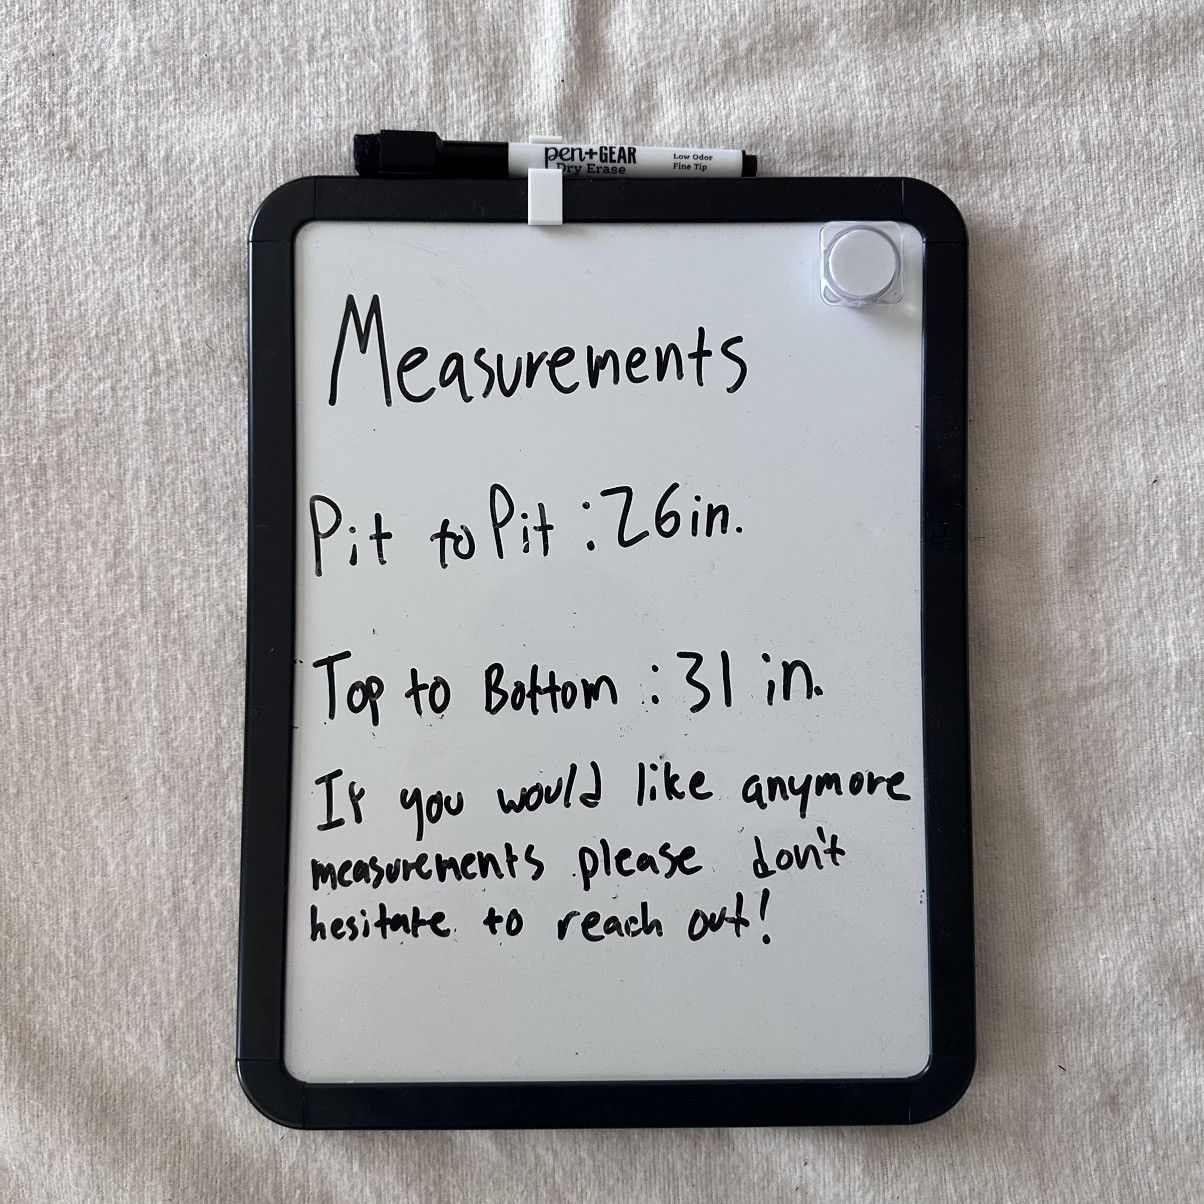 pen+GEAR
Dry Erase
Low Odor
Fine Tip
Measurements
Pit to Pit : 26in.
Top to Bottom : 31 in.
If you would like anymore
measurements please don't
hesitate to reach out!